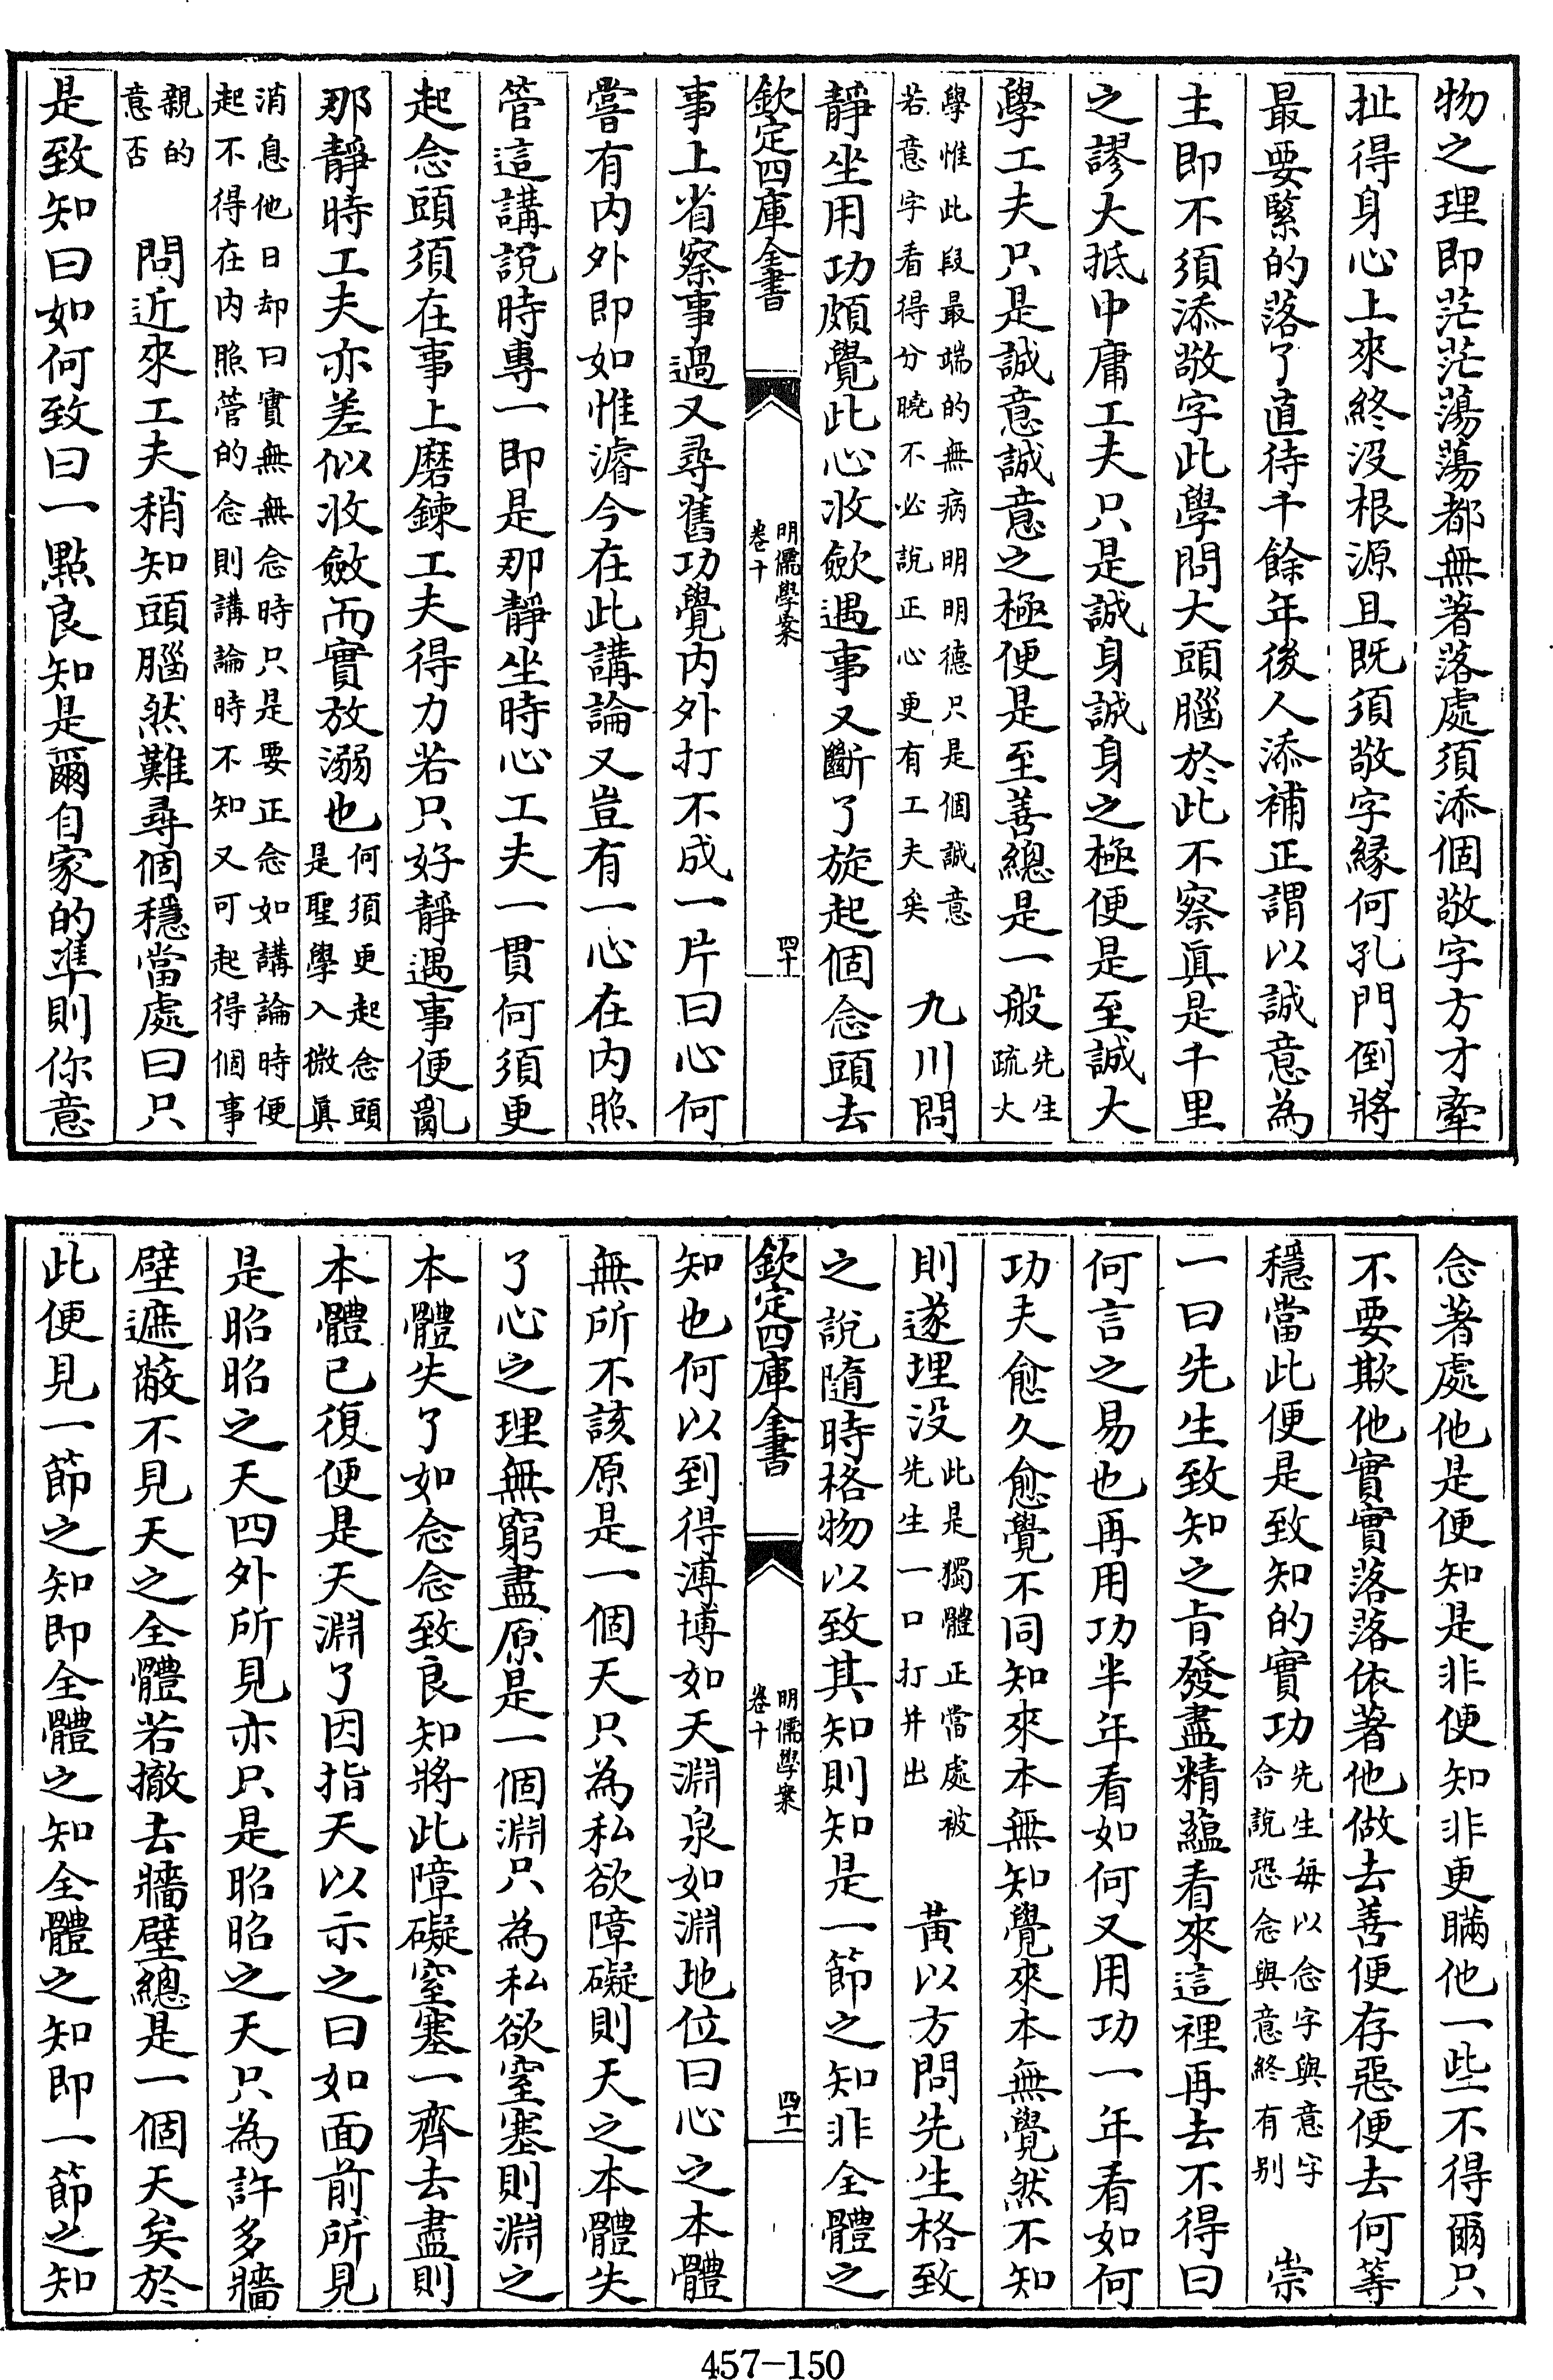 物之理即茫茫蕩蕩都無著落處須添個敬字方才牽
扯得身心上來終沒根源且既須敬字縁何孔門倒將
最要緊的落了直待千餘年後人添補正謂以誠意為
主即不須添敬字此學問大頭腦於此不察眞是千里
之謬大抵中庸工夫只是誠身誠身之極便是至誠大
學工夫只是誠意誠意之極便是至善總是一般先生疏大
學惟此段最端的無病明明德只是個誠意
若意字看得分曉不必說正心更有工夫矣　九川問
靜坐用功頗覺此心收歛遇事又斷了旋起個念頭去
欽定四庫全書
明儒學案
卷十
四十
事上省察事過又尋舊功覺内外打不成一片曰心何
嘗有内外即如惟濬今在此講論又豈有一心在内照
管這講說時專一即是那靜坐時心工夫一貫何須更
起念頭須在事上磨鍊工夫得力若只好靜遇事便亂
那靜時工夫亦差似收斂而實放溺也何須更起念頭是聖學入微眞
消息他日却曰實無無念時只是要正念如講論時便
起不得在内照管的念則講論時不知又可起得個事
親的
意否　問近來工夫稍知頭腦然難尋個穩當處曰只
是致知曰如何致曰一點良知是爾自家的凖則你意
念著處他是便知是非便知非更瞞他一些不得爾只
不要欺他實實落落依著他做去善便存惡便去何等
穩當此便是致知的實功先生每以念字與意字合說恐念與意終有别　崇
一曰先生致知之㫖發盡精藴看來這裡再去不得曰
何言之易也再用功半年看如何又用功一年看如何
功夫愈久愈覺不同知來本無知覺來本無覺然不知
則遂埋没此是獨體正當處被先生一口打并出　黃以方問先生格致
之說隨時格物以致其知則知是一節之知非全體之
欽定四庫全書
明儒學案
卷十
四十一
知也何以到得溥博如天淵泉如淵地位曰心之本體
無所不該原是一個天只為私欲障礙則天之本體失
了心之理無窮盡原是一個淵只為私欲窒塞則淵之
本體失了如念念致良知將此障礙窒塞一齊去盡則
本體已復便是天淵了因指天以示之曰如面前所見
是昭昭之天四外所見亦只是昭昭之天只為許多牆
壁遮蔽不見天之全體若撤去牆壁總是一個天矣於
此便見一節之知即全體之知全體之知即一節之知
457-150